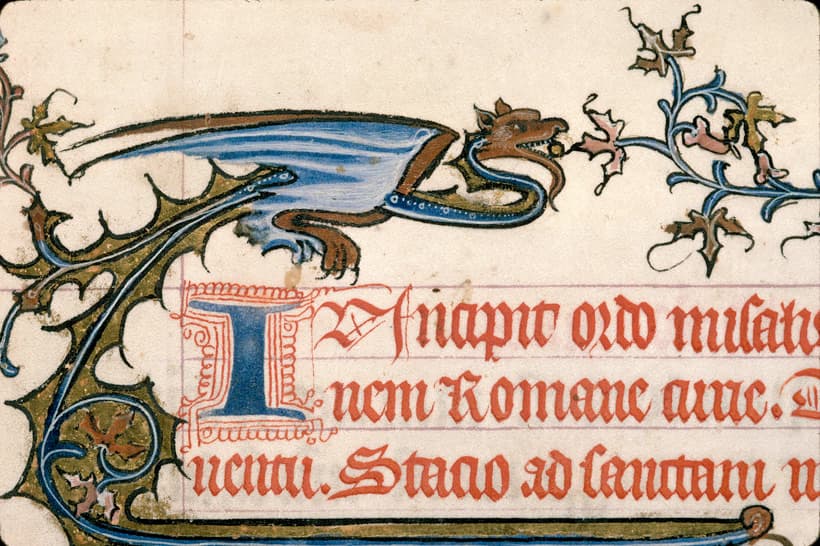 INcipit ordo misalis
nem Romane curie.
uentu. Stacio ad sanctam